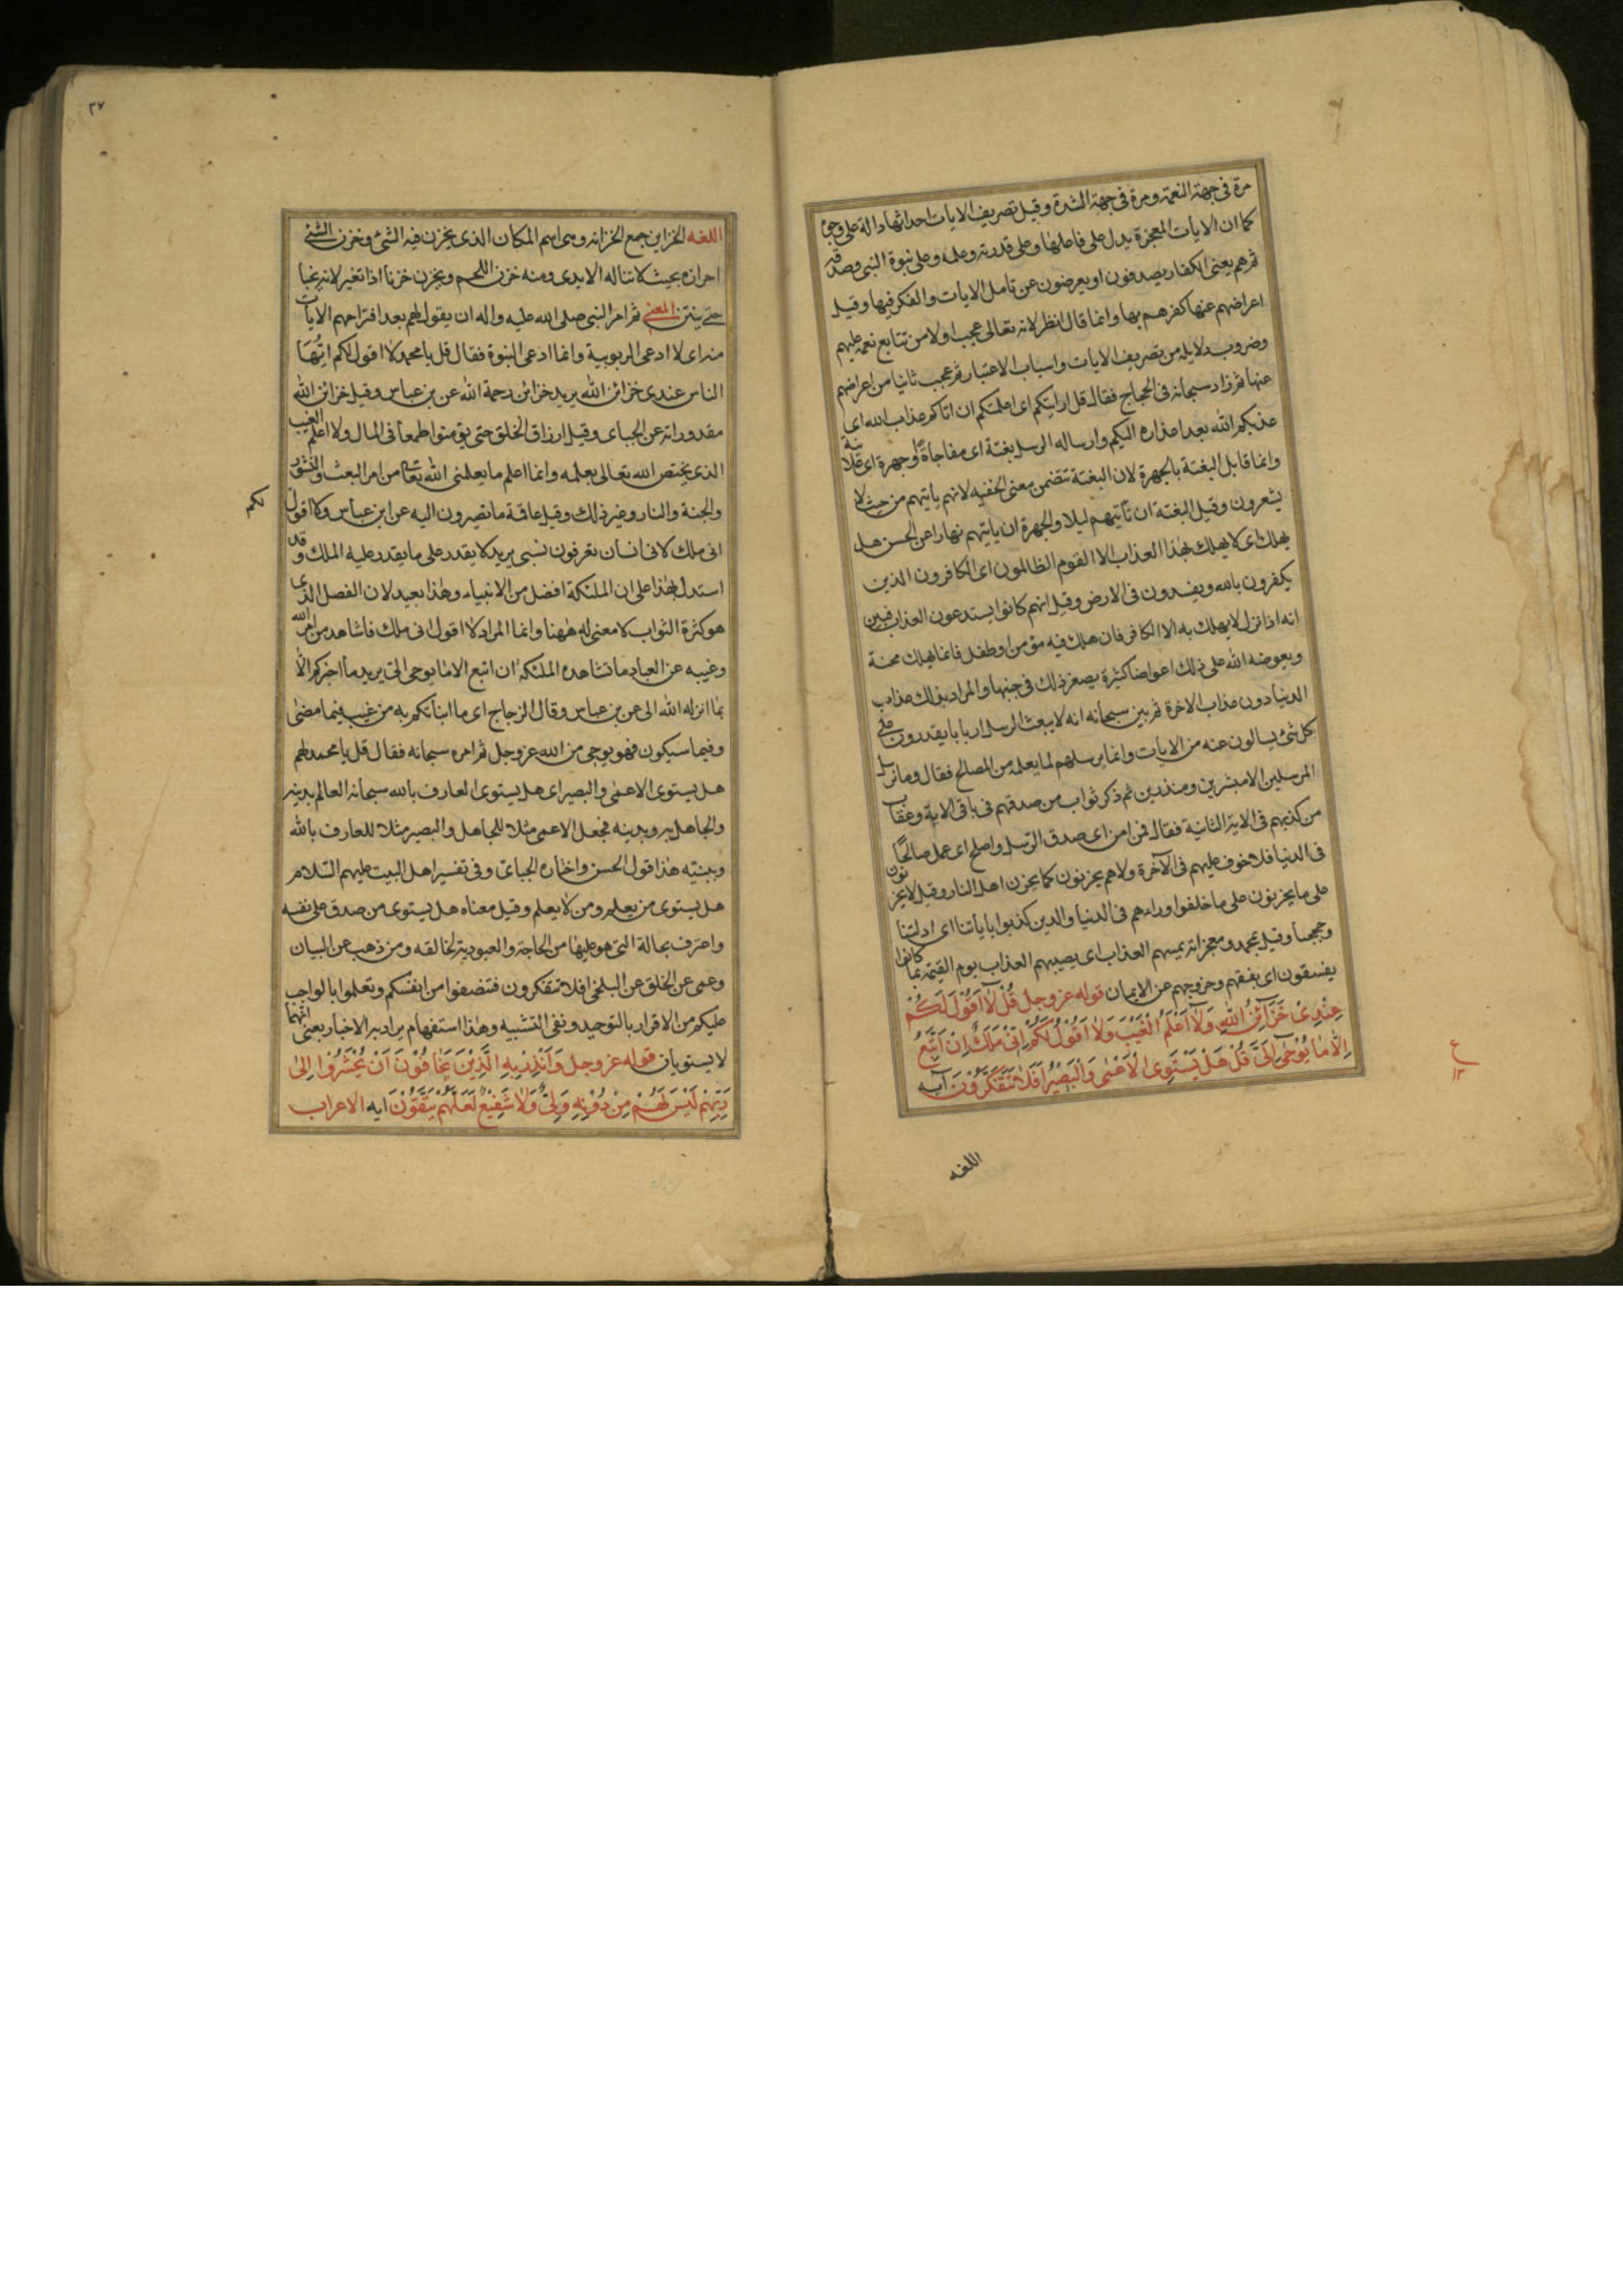 مرة فى جهة النعمة ومرة فى جهة الشدة وقيل تصريف الايات احداثها دالة على وجوه
كما ان الايات المعجزة يدل على فاعلها وعلى قدرته وعلمه وعلى نبوة النبى وصدقه
ثم هم يعنى الكفار يصدفون او يعرضون عن تامل الايات والفكر فيها وقيل
اعراضهم عنها كفرهم بها وانما قال انظر لانه تعالى عجب اولا من تتابع نعمه عليهم
وضروب دلايله من تصريف الايات واسباب الاعتبار ثم عجب ثانيا من اعراضهم
عنها ثم زاد سبحانه فى الحجاج فقال قل ارايتكم اى اعلمتكم ان اتاكم عذاب الله اى
عذبكم الله بعد اعذاره اليكم وارساله الرسل بغتة اى مفاجاة او جهرة اى علانية
وانما قابل البغتة بالجهرة لان البغتة تتضمن معنى الخفيه لانهم ياتيهم من حيث لا
يشعرون وقيل البغتة ان تاتيهم ليلا والجهرة ان ياتيهم نهارا عن الحسن هل
يهلك اى لا يهلك بهذا العذاب الا القوم الظالمون اى الكافرون الذين
يكفرون بالله ويفسدون فى الارض وقيل انهم كانوا يستدعون العذاب فبين
انه اذا نزل لا يهلك به الا الكافر فان هلك فيه مؤمن او طفل فانما يهلك محنة
ويعوضه الله على ذلك اعواضا كثيرة يصغر ذلك فى جنبها والمراد بذلك عذاب
الدنيا دون عذاب الاخرة ثم بين سبحانه انه لا يبعث الرسل اربابا يقدرون على
كل شئ يسالون عنه من الايات وانما يرسلهم لما يعلمه من المصالح فقال وما نرسل
المرسلين الا مبشرين ومنذرين ثم ذكر ثواب من صدقهم فى باقى الاية وعقاب
من كذبهم فى الاية الثانية فقال فمن امن اى صدق الرسل واصلح اى عمل صالحا
فى الدنيا فلا خوف عليهم فى الآخرة ولا هم يحزنون كما يحزن اهل النار وقيل لا يحزنون
على ما يحزنون على ما خلفوا وراءهم فى الدنيا والذين كذبوا باياتنا اى ادلتنا
وحججنا وقيل بمحمد ومعجزاته يمسهم العذاب اى يصيبهم العذاب يوم القيمة بما كانوا
يفسقون اى بفسقهم وخروجهم عن الايمان قوله عز وجل قُلْ لَا اَقُوْلُ لَكُمْ
عِنْدِىْ خَزَآئِنُ اللهِ وَلَآ اَعْلَمُ الْغَيْبَ وَلَآ اَقُوْلُ لَكُمْ اِنِّىْ مَلَكٌ اِنْ اَتَّبِعُ
اِلَّا مَا يُوْحٰى اِلَىَّ قُلْ هَلْ يَسْتَوِى الْاَعْمٰى وَالْبَصِيْرُ اَفَلَا تَتَفَكَّرُوْنَ آيه
اللغه
ع
١٢
٣٧
اللغه الخزاين جمع الخزانه وهى اسم المكان الذى يخزن فيه الشئ وخزن الشئ
احرازه بحيث لا تناله الايدى ومنه خزن اللحم ويخزن خزنا اذا تغير لانه يخبا
حتى ينتن المعنى ثم امر النبى صلى الله عليه واله ان يقول لهم بعد اقتراحهم الايات
منه اى لا ادعى الربوبية وانما ادعى النبوة فقال قل يا محمد لا اقول لكم ايُّها
الناس عندى خزائن الله يريد خزائن رحمة الله عن بن عباس وقيل خزائن الله
مقدوراته عن الجباى وقيل ارزاق الخلق حتى يؤمنوا طمعا فى المال ولا اعلم الغيب
الذى يختص الله تعالى بعلمه وانما اعلم ما يعلمنى الله تعالى من امر البعث والنشور
والجنة والنار وغير ذلك وقيل عاقبة ما تصيرون اليه عن ابن عباس ولا اقول
لكم
انى ملك لانى انسان تعرفون نسبى يريد لا يقدر على ما يقدر عليه الملك وقد
استدل بهذا على ان الملئكة افضل من الانبياء وهذا بعيد لان الفصل الذى
هو كثرة الثواب لا معنى له ههنا وانما المراد لا اقول انى ملك فاشاهد من امر الله
وغيبه عن العباد ما تشاهده الملئكه ان اتبع الا ما يوحى الى يريد ما اخبركم الا
بما انزله الله الى عن بن عباس وقال الزجاج اى ما انبأتكم به من غيب فيما مضى
وفيما سيكون فهو يوحى من الله عز وجل ثم امره سبحانه فقال قل يا محمد لهم
هل يستوى الاعمى والبصير اى هل يستوى العارف بالله سبحانه العالم بدينه
والجاهل به وبدينه فجعل الاعمى مثلا للجاهل والبصير مثلا للعارف بالله
وبنبيه هذا قول الحسن واختاره الجبائى وفى تفسير اهل البيت عليهم السّلام
هل يستوى من يعلم ومن لا يعلم وقيل معناه هل يستوى من صدق على نفسه
واعترف بحالة التى هو عليها من الحاجة والعبودية لخالقه ومن ذهب عن البيان
وعمى عن الخلق عن البلخى افلا تتفكرون فتضفوا من انفسكم وتعلموا بالواجب
عليكم من الاقرار بالتوحيد ونفى التشبيه وهذا استفهام يراد به الاخبار يعنى انهما
لا يستويان قوله عز وجل وَاَنْذِرْ بِهِ الَّذِيْنَ يَخَافُوْنَ اَنْ يُّحْشَرُوْا اِلٰى
رَبِّهِمْ لَيْسَ لَهُمْ مِنْ دُوْنِهٖ وَلِىٌّ وَّلَا شَفِيْعٌ لَعَلَّهُمْ يَتَّقُوْنَ ايه الاعراب